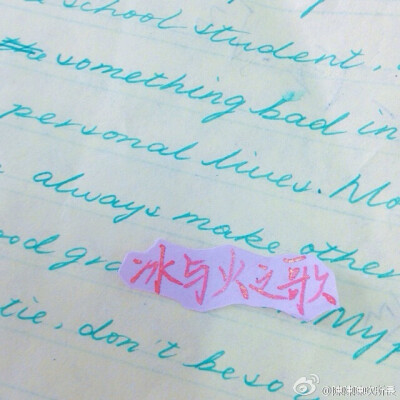 school student,
something bad in
personal lives. Mo
always make other
ood gra
冰与火之歌
. My p
tie, don't be so